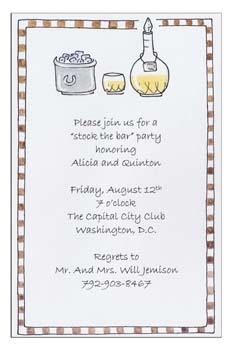 Please join us for a
"stock the bar" party
honoring
Alicia and Quinton
Friday, August 12th
7 o'clock
The Capital City Club
Washington, D.C.
Regrets to
Mr. And Mrs. Will Jemison
792-903-8467